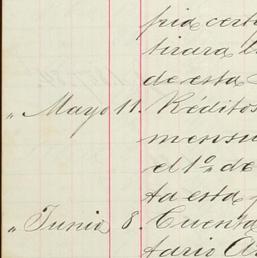 pia cert
tirara l
de esta
" Mayo 11. Réditos
mensu
el 1º de
ta esta
" Junio 8. Cuenta
tario A